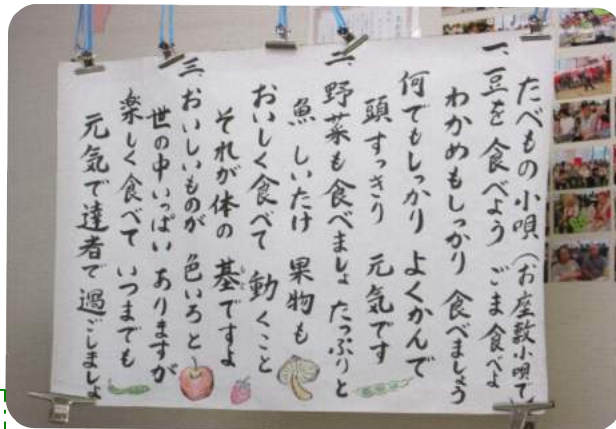 たべもの小唄(お座敷小唄で)
一、豆を食べよう ごま食べよ
わかめもしっかり 食べましょう
何でもしっかり よくかんで
頭すっきり 元気です
二、野菜も食べましょ たっぷりと
魚 しいたけ 果物も
おいしく食べて 動くこと
それが体の 基ですよ
もと
三、おいしいものが 色いろと
世の中いっぱい ありますが
楽しく食べて いつまでも
元気で達者で過ごしましょ